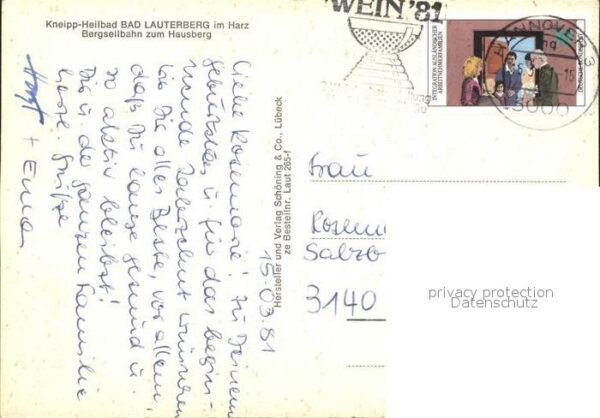 Kneipp-Heilbad BAD LAUTERBERG im Harz
Bergseilbahn zum Hausberg
WEIN '81
INTEGRATION AUSLÄNDISCHER
ARBEITNEHMERFAMILIEN
DEUTSCHE BUNDESPOST
HANNOVER
3000
15.03.81
Liebe Rosemarie! Zu Deinem
Geburtstag u. für das begin-
nende Lebensjahr wünschen
wir Dir alles Beste, vor allem
daß Du lange gesund u.
so aktiv bleibst!
Dir u. der ganzen Familie
liebe Grüße
Horst + Erna
Hersteller und Verlag Schöning & Co., Lübeck
ze Bestellnr. Laut 265-f
Frau
Rosem
Salzb
3140
privacy protection
Datenschutz